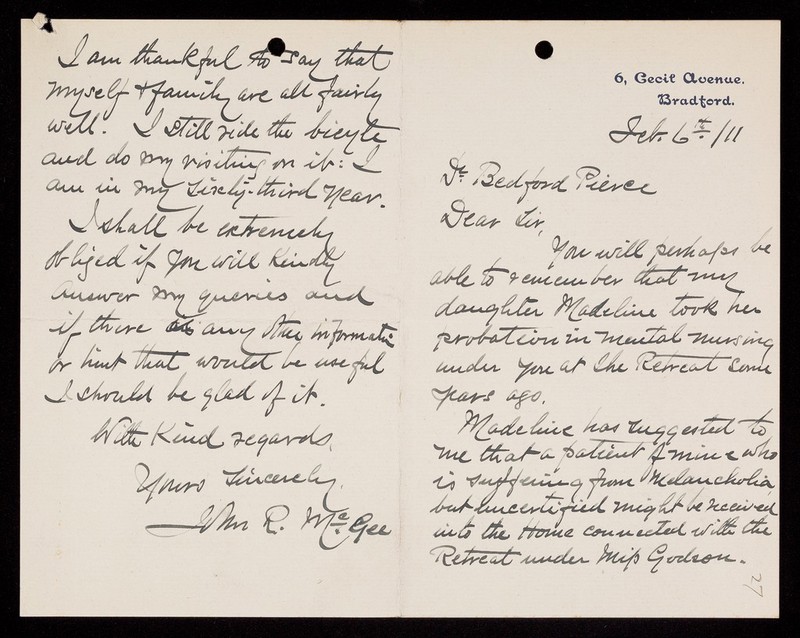 6, Cecil Avenue.
Bradford.
Feb. 6th. /11
Dr Bedford Pierce
Dear Sir,
You will perhaps be
able to remember that my
daughter Madeline took her
probation in mental nursing
under you at The Retreat some
years ago.
Madeline has suggested to
me that a patient of mine who
is suffering from Melancholia
but uncertified might be received
into the Home connected with the
Retreat under Miss Godson.
27
I am thankful to say that
myself & family are all fairly
well. I still ride the bicycle
and do my visiting on it: I
am in my sixty-third year.
I shall be extremely
obliged if you will kindly
answer my queries and
if there any other information
or hint that would be useful
I should be glad of it.
With Kind regards,
Yours Sincerely,
John R. McGee